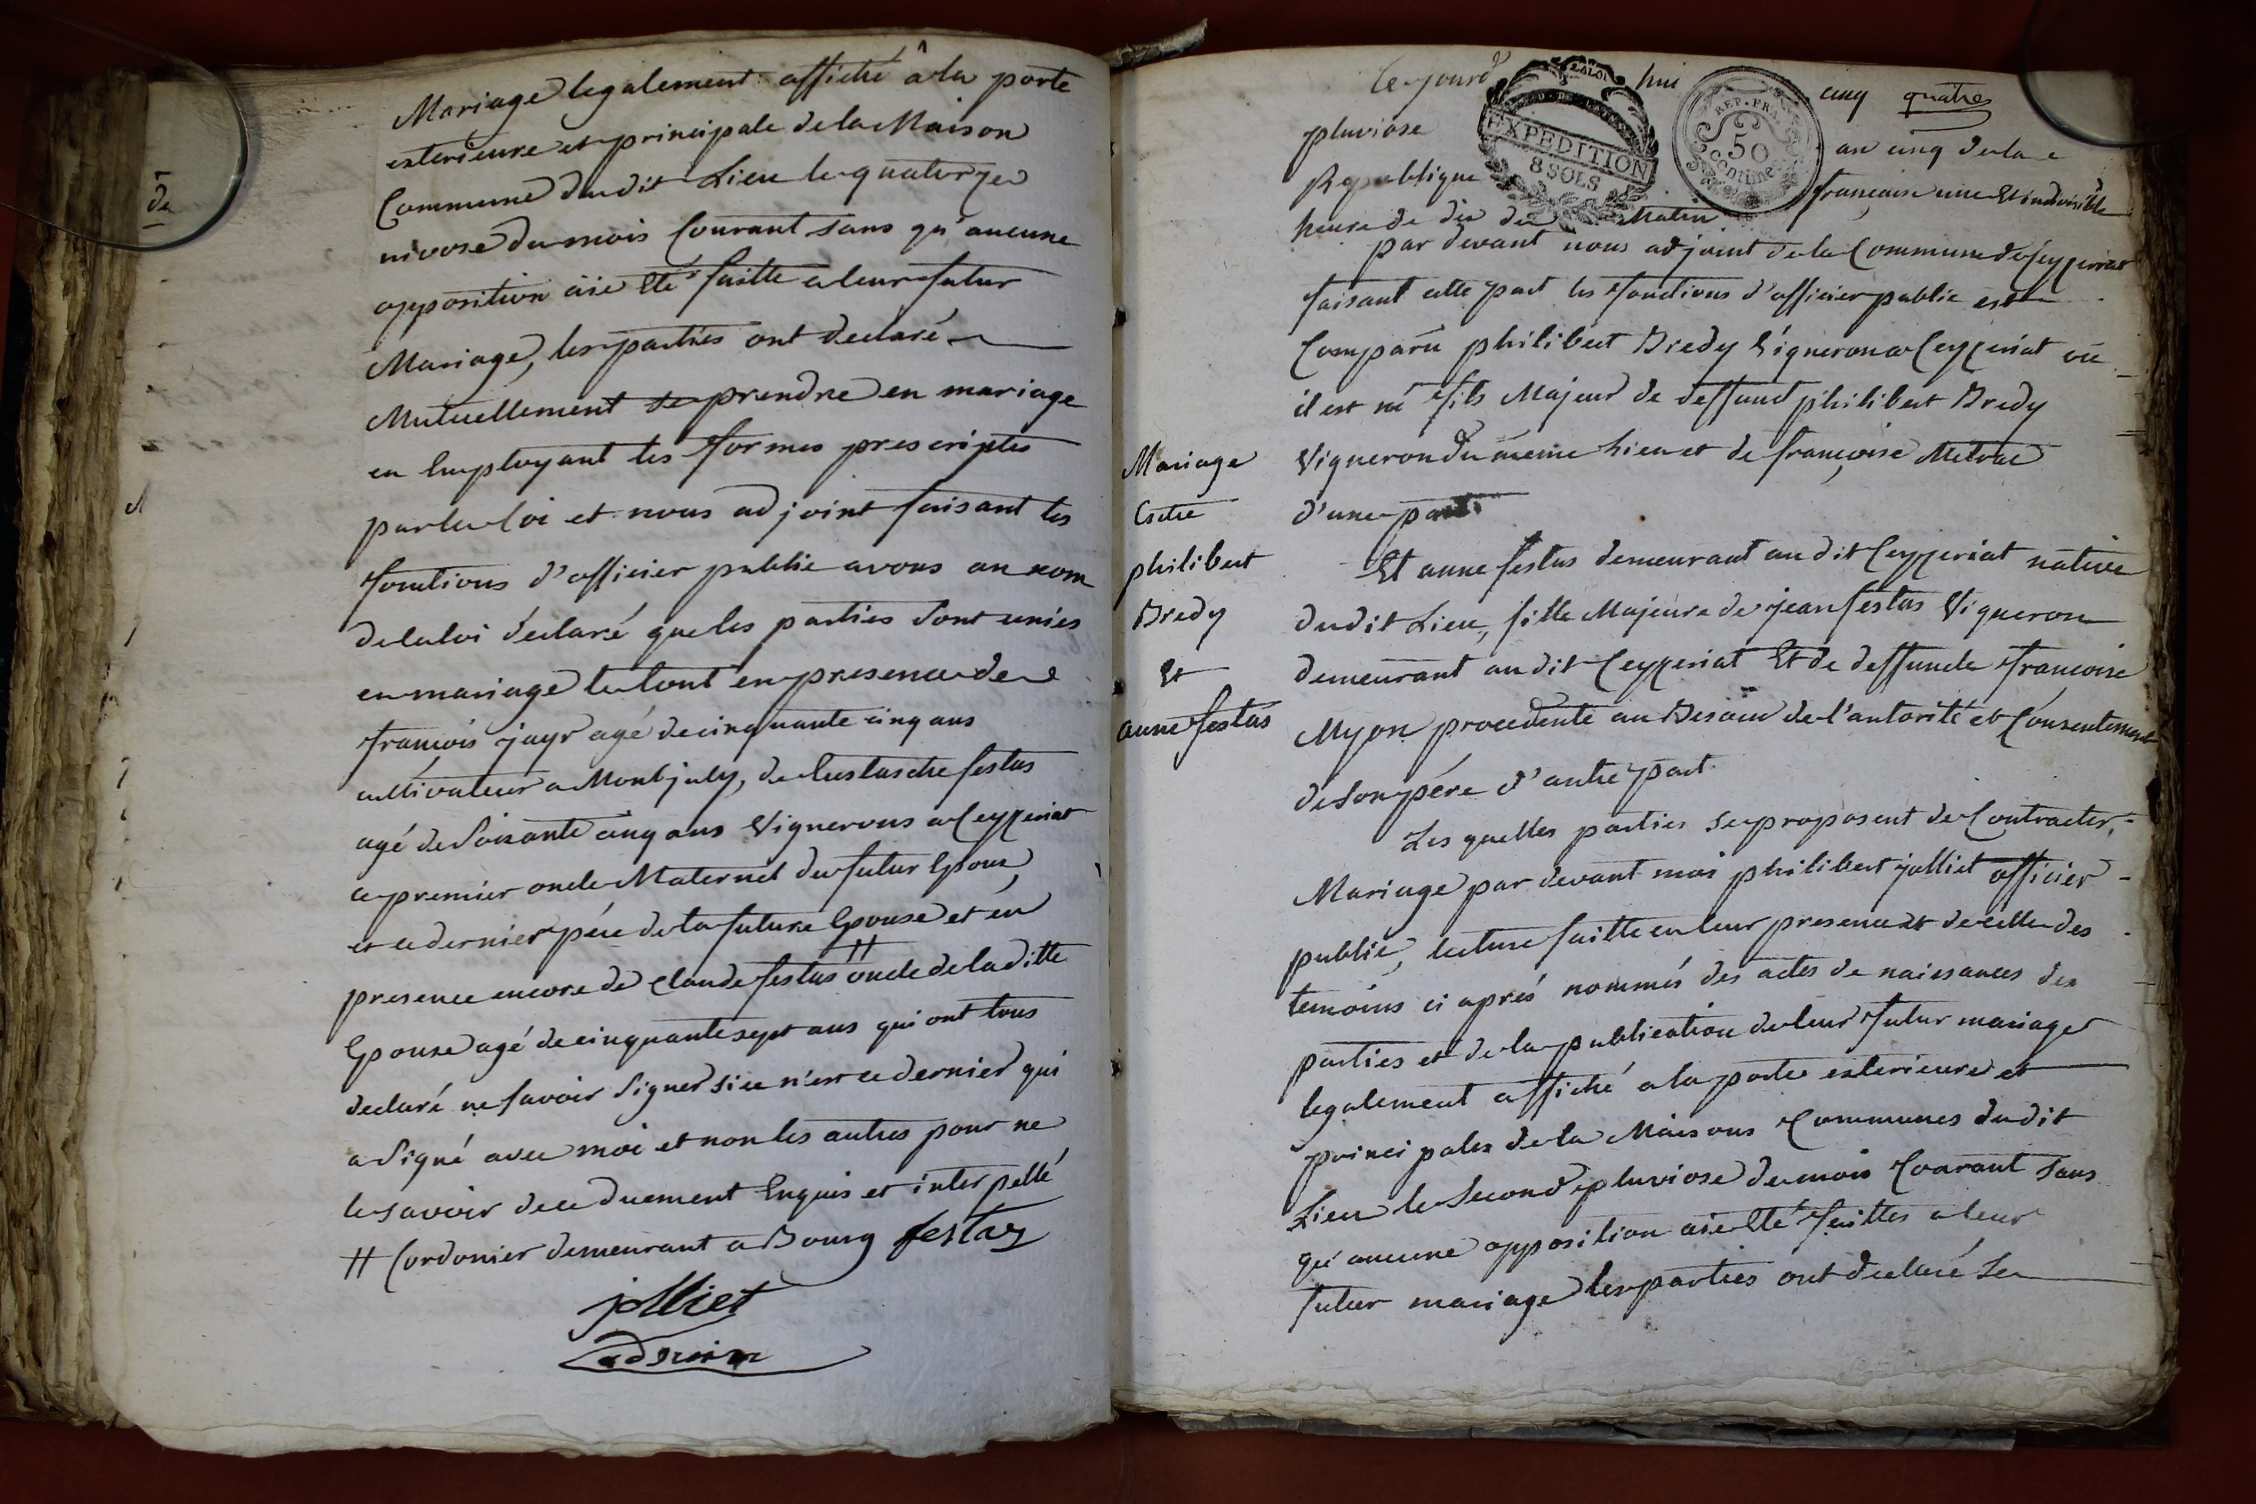 Mariage legalement affiché â la porte
exterieure et principale de la Maison
Commune dudit Lieu le quatorze
nivose du mois Courant sans qu'aucune
opposition aie Eté faitte a leur futur
Mariage, les parties ont declaré
Mutuellement se prendre en mariage
en Employant les formes prescriptes
par la Loi et nous adjoint faisant les
fonctions d'officier public avons au nom
de la loi déclaré que les parties sont unies
en mariage le tout en presence de
françois jayr agé de cinquante cinq ans
cultivateur a Montjuly, de Eustache festas
agé de Soixante cinq ans Vignerons a Ceyzeriat
ce premier oncle Maternel du futur Epoux,
et ce dernier père de la future Epouse et en
presence encore de Claude festas # oncle de la ditte
Epouse agé de cinquante sept ans qui ont tous
declaré ne savoir Signer si ce n'est ce dernier qui
a Signé avec moi et non les autres pour ne
le savoir de ce duement Enquis et interpellé
# Cordonier demeurant a Bourg festas
jolliet
adjoint
Ce jourd hui cinq quatre
pluviose an cinq de la
Republique françaises une Et indivisible
heure de dix du Matin
EXPEDITION
8 SOLS
LA LOI
REP. FRA.
50
CENTIMES
par devant nous adjoint de la Commune de Ceyzeriat
faisant cette part les fonctions d'officier public est
Comparu philibert Bredy Vigneron a Ceyzeriat où
il est né fils Majeur de deffunt philibert Bredy
Vigneron du même Lieu et de françoise
d'une part
Mariage
Entre
philibert
Bredy
Et
anne festas
Et anne festas demeurant au dit Ceyzeriat native
du dit Lieu, fille Majeure de jean festas Vigneron
demeurant au dit Ceyzeriat Et de deffuncte francoise
Myon procedente au Besoin de l'autorité et Consentement
de Son père d'autre part
Les quelles parties se proposent de Contracter
Mariage par devant moi philibert jolliet officier
public, lecture faitte en leur presence et de celle des
temoins ci aprés nommés des actes de naissances des
parties et de la publication de leur futur mariage
legalement affiché a la porte exterieure et
principales de la Maisons Communes du dit
Lieu le Second pluviose du mois Courant sans
qu'aucune opposition aie Eté faittes a leur
futur mariage les parties ont declaré se